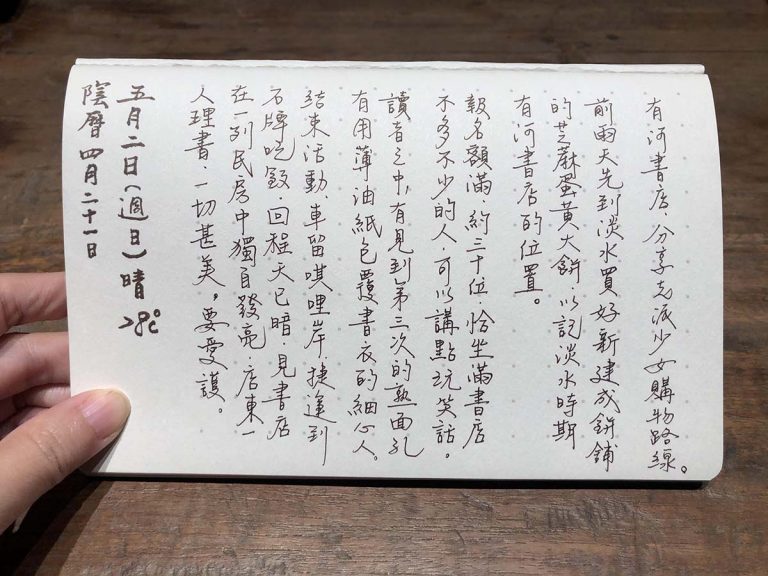 有河書店，分享減少女購物路線。
前兩天先到淡水買好新建成餅鋪
的芝蔴蛋黃大餅，以記淡水時期
有河書店的位置。
報名額滿，約三十位，恰坐滿書店
不多不少的人，可以講點玩笑話。
讀者之中，有見到第三次的熟面孔
有用薄油紙包覆書衣的細心人。
結束活動，車留唭哩岸，捷運到
石牌吃飯，回程天已暗，見書店
在一列民房中獨自發亮，店東一
人理書，一切甚美。要愛護。
五月二日(週日)晴 28℃
陰曆 四月二十一日